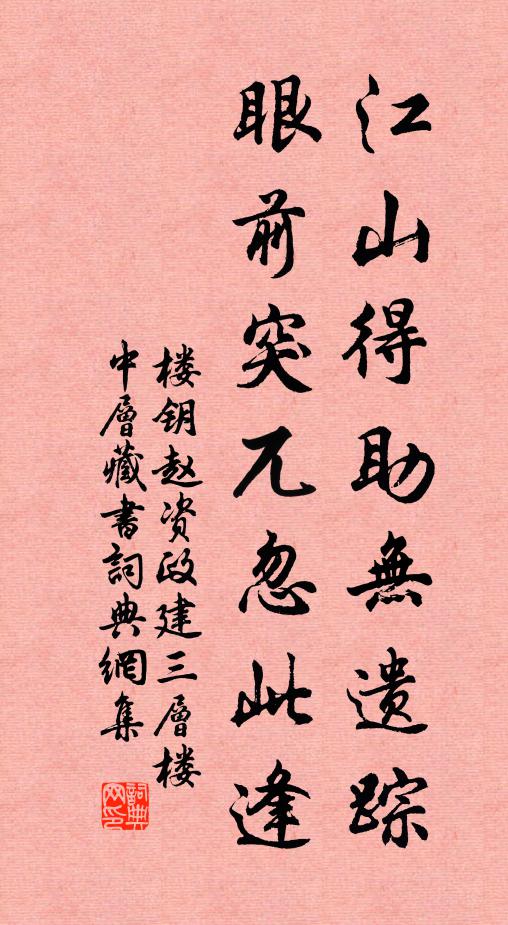 江山得助無遗踪
眼前突兀忽此逢
楼钥赵资政建三層楼
中層藏書詞典網集
詞典网印